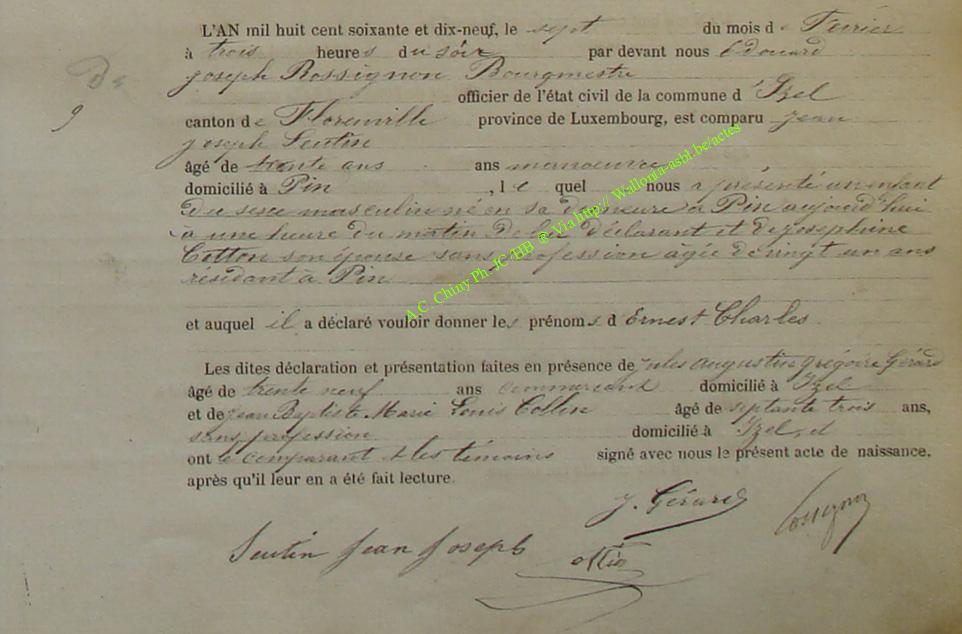 L'AN mil huit cent soixante et dix-neuf, le sept du mois de Février
à trois heures du soir par devant nous Edouard
Joseph Rossignon Bourgmestre
De officier de l'état civil de la commune d'Izel
9 canton de Florenville province de Luxembourg, est comparu Jean
Joseph Seutin
âgé de trente ans ans manoeuvre
domicilié à Pin , le quel nous a présenté un enfant
du sexe masculin né en sa demeure à Pin aujourd'hui
à une heure du matin de lui déclarant et de Joséphine
Collon son épouse sans profession agée de vingt un ans
résidant à Pin
A.C. Chiny Ph. JC /HB ® Via http:// Wallonia-asbl.be/actes
et auquel il a déclaré vouloir donner les prénoms d'Ernest Charles
Les dites déclaration et présentation faites en présence de Jules Augustin Grégoire Gérard
âgé de trente neuf ans commercant domicilié à Izel
et de Jean Baptiste Marie Louis Collin âgé de septante trois ans,
sans profession domicilié à Izel, et
ont le comparant et les témoins signé avec nous le présent acte de naissance,
après qu'il leur en a été fait lecture.
J. Gérard
Seutin Jean Joseph